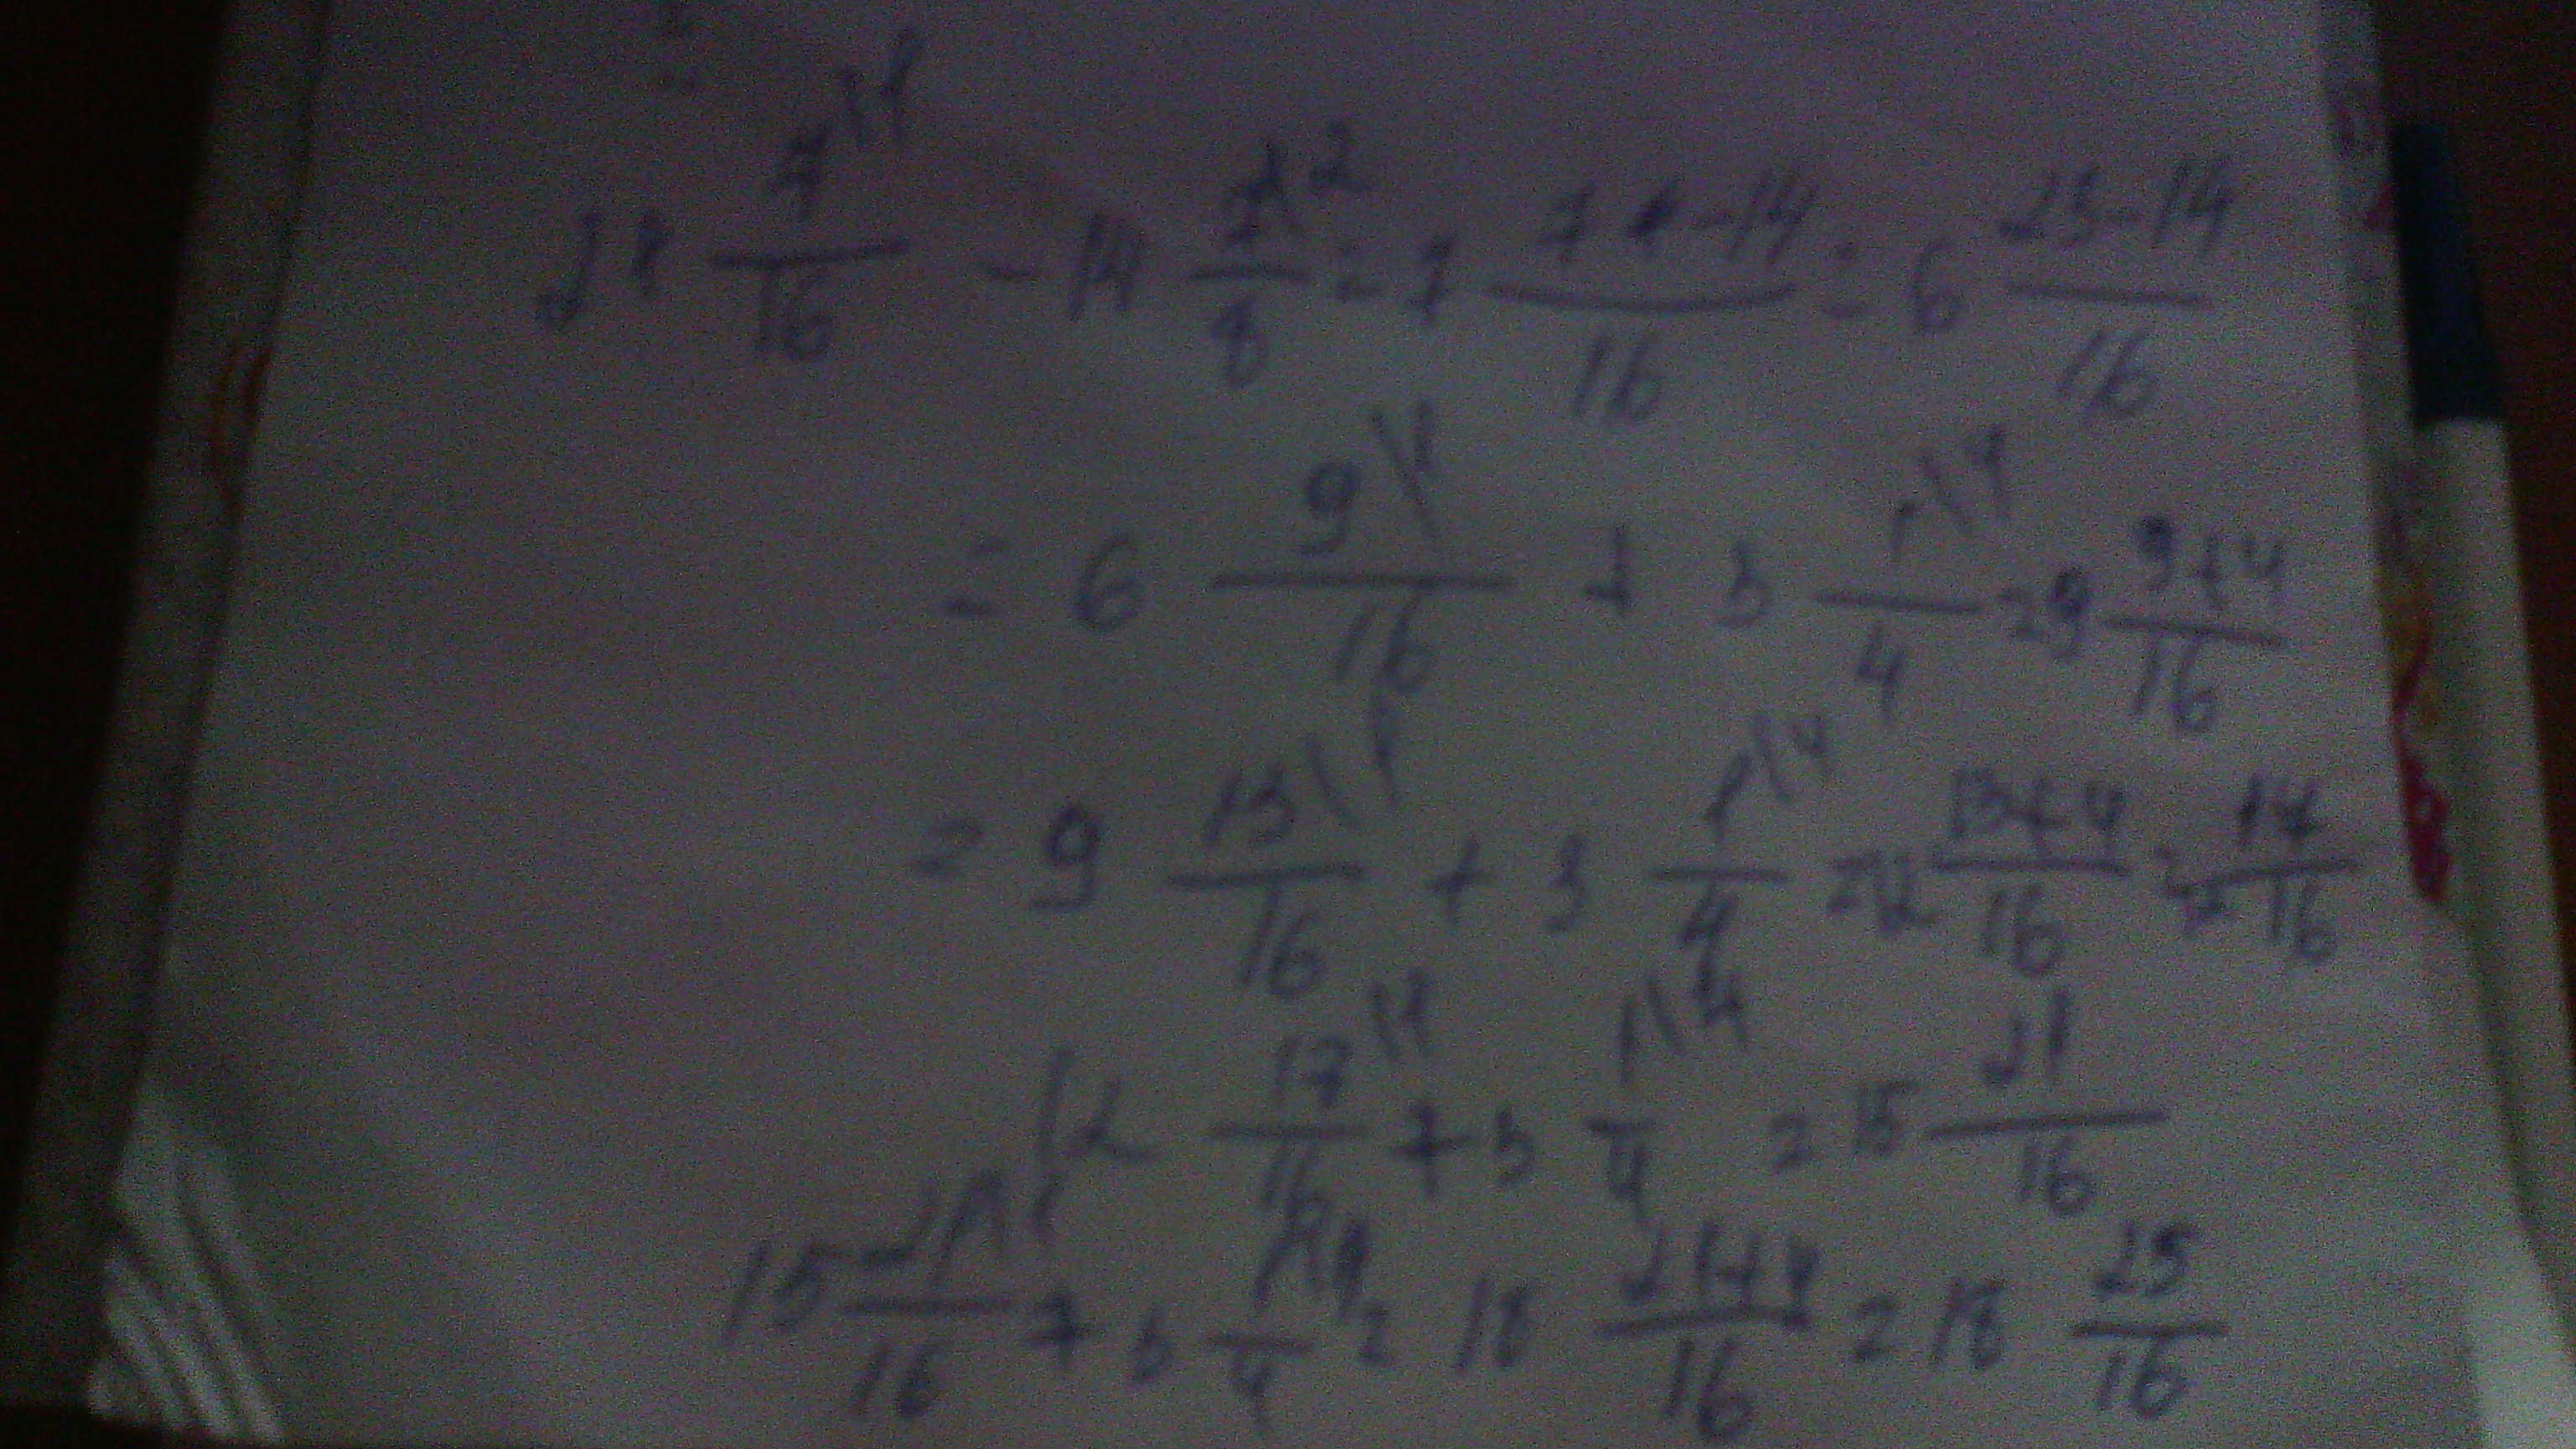 21 7\1/16 - 14 7\2/8 = 7 7-14/16 = 6 23-14/16
= 6 9\1/16 + 3 1\4/4 = 9 9+4/16
= 9 13\1/16 + 3 1\4/4 = 12 13+4/16 = 12 17/16
12 17\1/16 + 3 1\4/4 = 15 21/16
15 21\1/16 + 3 1\4/4 = 18 21+4/16 = 18 25/16